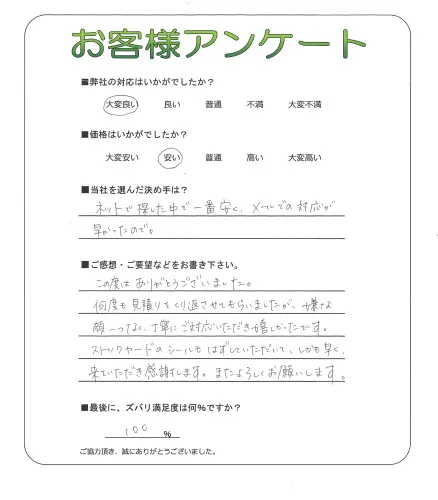 お客様アンケート
■弊社の対応はいかがでしたか？
大変良い 良い 普通 不満 大変不満
■価格はいかがでしたか？
大変安い 安い 普通 高い 大変高い
■当社を選んだ決め手は？
ネットで探した中で一番安く、メールでの対応が
早かったので。
■ご感想・ご要望などをお書き下さい。
この度はありがとうございました。
何度も見積りをくり返させてもらいましたが、嫌な
顔一つなく、丁寧にご対応いただき嬉しかったです。
ストックヤードのシールもはずしていただいて、しかも早く
来ていただき感謝します。またよろしくお願いします。
■最後に、ズバリ満足度は何％ですか？
100 ％
ご協力頂き、誠にありがとうございました。